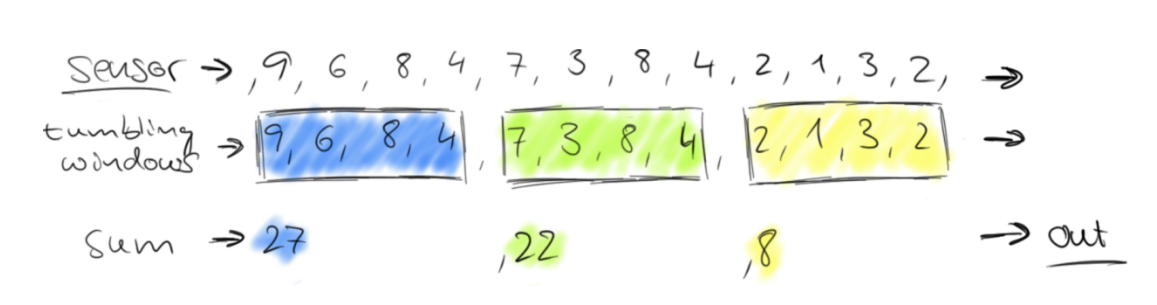 sensor → , 9, 6, 8, 4, 7, 3, 8, 4, 2, 1, 3, 2, →
tumbling
windows → 9, 6, 8, 4 , 7, 3, 8, 4 , 2, 1, 3, 2 →
sum → 27 , 22 , 8 → out